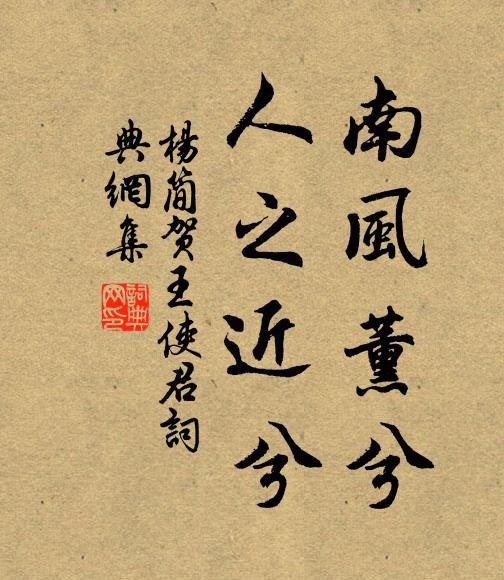 南風薰兮
人之近兮
楊簡賀王使君詞
典網集
詞典網印